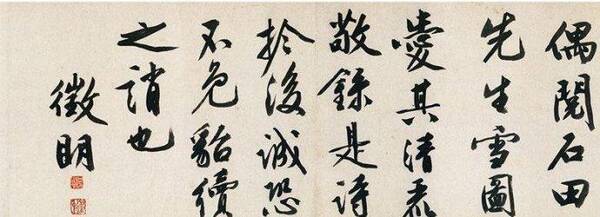 偶閱石田
先生雪圖
愛其清
敬錄是詩
於後誠恐
不免貂續
之誚也
徵明